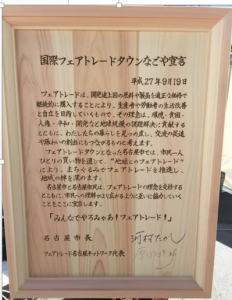 国際フェアトレードタウンなごや宣言
平成27年9月19日
フェアトレードは、開発途上国の原料や製品を適正な価格で
継続的に購入することにより、生産者や労働者の生活改善
と自立を目指していくもので、その理念は、環境・貧困・
人権・平和・開発など地球規模の課題解決に貢献する
とともに、わたしたちの暮らしを見つめ直し、
フェアトレードタウンとなった名古屋市では、市民一人
ひとりの買い物を通して、“地域とのフェアトレード”
により、まちぐるみでフェアトレードを推進し、
地域の絆を深めます。
名古屋市と名古屋市民は、フェアトレードの理念を支持する
とともに、市民への理解がより広がるように思いに協力していく
ことをここに宣言します。
「みんなでやろみゃあ!フェアトレード!」
名古屋市長 河村たかし
フェアトレード名古屋ネットワーク代表